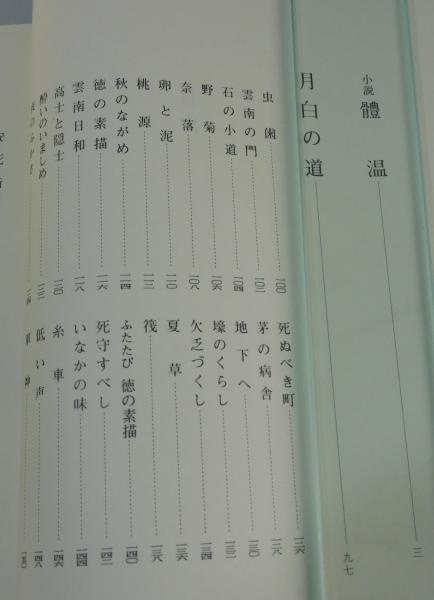 小説 體温 三
月白の道 九七
虫歯 一〇〇
雲南の門 一〇二
石の小道 一〇四
野菊 一〇六
奈落 一〇八
卵と泥 一一〇
桃源 一一二
秋のながめ 一一四
徳の素描 一一六
雲南日和 一一八
高士と隠士 一二〇
酔いのいましめ 一二二
死ぬべき町 一二六
茅の病舎 一二八
地下へ 一三〇
壕のくらし 一三二
欠乏づくし 一三四
夏草 一三六
筏 一三八
ふたたび 徳の素描 一四〇
死守すべし 一四二
いなかの味 一四四
糸車 一四六
低い声 一四八
神 一五〇